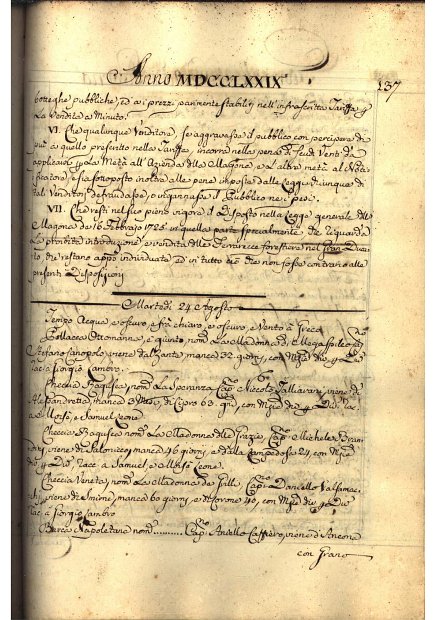 Anno MDCCLXXIX
137
botteghe pubbliche, ed ai prezzi parimente stabiliti nell'infrascritta Tariffa p
La Vendita a Minuto.
VI. Che qualunque Venditore, se aggravasse il pubblico con percipere di
più di quello prescritto nella Tariffa, incorra nella pena di Scudi Venti da
applicarsi p La Metà all'Azienda dlle Magone, e L'altra metà al Noti-
ficatore, e sia sottoposto inoltre alle pene imposte dalle Leggi
tali Venditori defraudasse, o ingannasse il Pubblico nei pesi.
VII. Che resti nel suo pieno vigore il disposto nella Legge generale dlle
Magone de 16 Febbraio 1726 in quella parte specialmente che riguarda
La proibita introduzione, e vendita dlle Ferrarecce forestiere nel Gran Duca-
to, che restano appo individuate, ed in tutto ciò che non fosse contrario alle
presenti Disposizioni
Martedì 24 Agosto
Tempo Acqua e oscuro, e frà chiaro, e oscuro, e Vento à Greco
Pollacca Ottomanna, e quinto nom La Madonna di
Stefano viene dall' manca 32 giorni, con
à Giorgio Lambro.
Checcia Ragusea nom La Speranza Cap Niccolò viene di
Alessandretta, manca 3 Mesi, di Cipro 63 con
Moisè, e Samuel Leone
Checcia Ragusea nom La Madonna dlle Grazie, Cap Michele
viene di Salonicco, manca 46 giorni, e dalla Lampedosa 24, con
racc à Samuel, e Moisè Leone.
Checcia Veneta, nom La Madonna Cap Daniello
viene di Smirne, manca 60 giorni, e di Corone 40, con
à Giorgio Lambro
Barca Napoletana nom .......... Cap Aniello Caffiero, viene di Ancona
con Grano